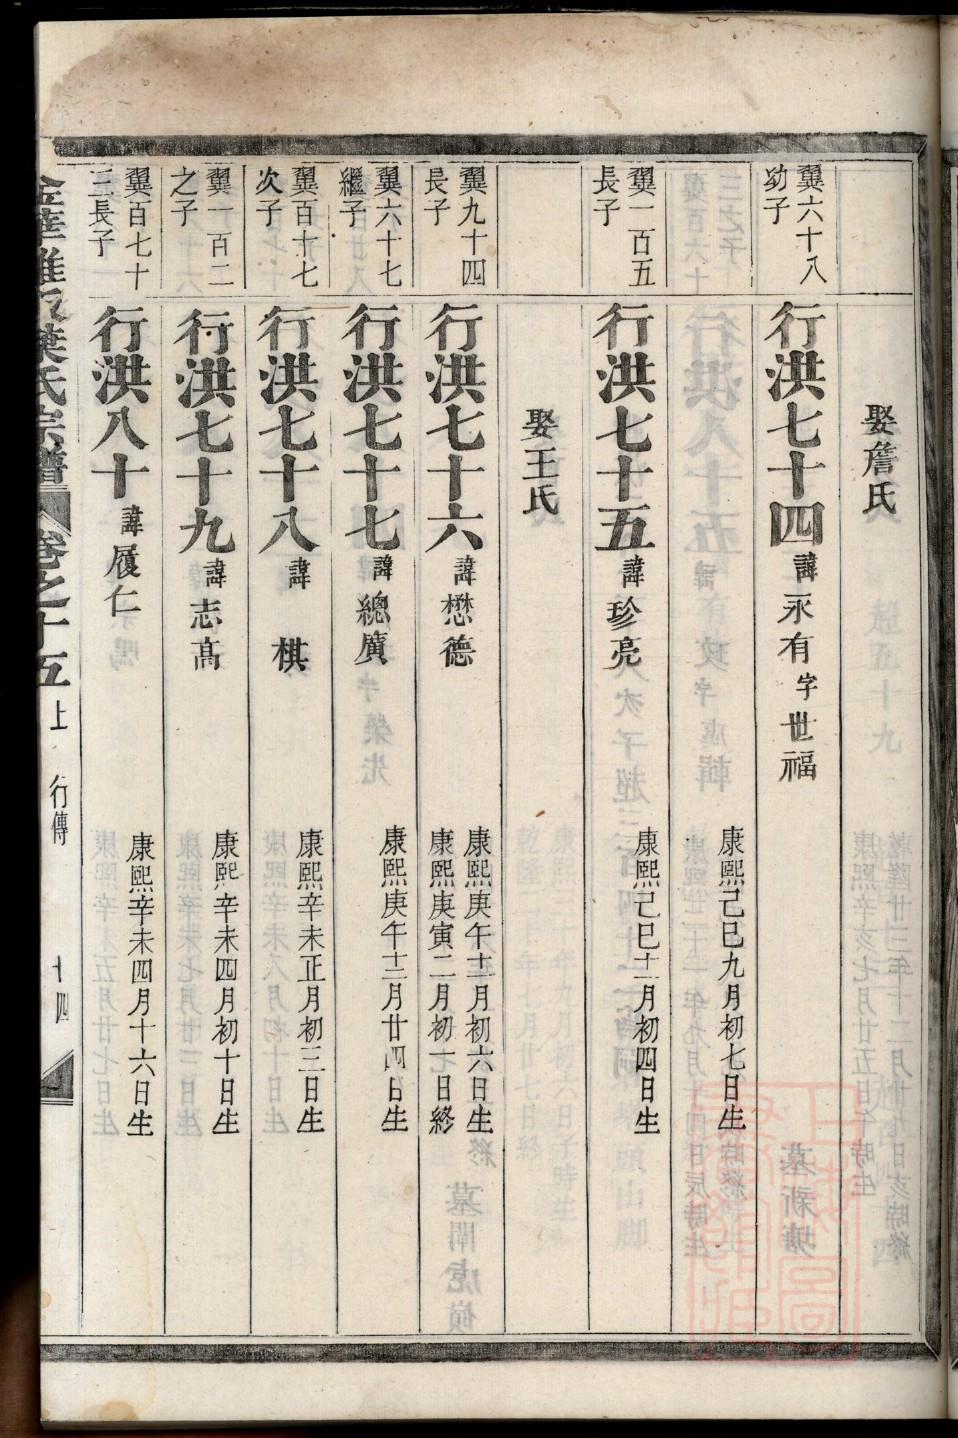 娶詹氏
翼六十八
幼子
行洪七十四 諱永有 字世福
康熙己巳九月初七日生
翼一百五
長子
行洪七十五 諱珍亮
康熙己巳十一月初四日生
娶王氏
翼九十四
長子
行洪七十六 諱懋德
康熙庚午十二月初六日生
康熙庚寅二月初七日終
翼六十七
繼子
行洪七十七 諱總廣
康熙庚午十二月廿四日生
翼百十七
次子
行洪七十八 諱棋
康熙辛未正月初三日生
翼一百二
之子
行洪七十九 諱志高
康熙辛未四月初十日生
翼百七十
三長子
行洪八十 諱履仁
康熙辛未四月十六日生
葉氏宗譜 卷之十五上 行傳 十四